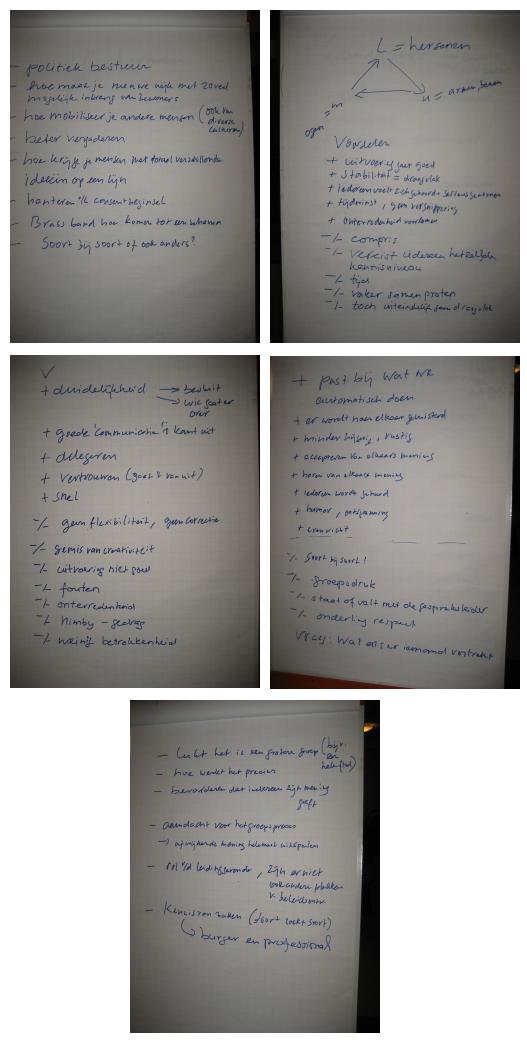 - politiek bestuur
- hoe maak je nieuwe wijk met zoveel
mogelijk inbreng van bewoners
- hoe mobiliseer je andere mensen (ook van
diverse
culturen)
- beter vergaderen
- hoe krijg je mensen met totaal verschillende
ideeën op een lijn
- hanteren v/h consentbeginsel
- Brassband hoe komen tot een
- Soort bij soort of ook anders?
L = hersenen
m
u = armen, benen
ogen =
Voordelen
+ uitvoering gaat goed
+ stabiliteit = draagvlak
+ iedereen voelt zich gehoord, serieus genomen
+ tijdwinst, geen versnippering
+ ontevredenheid voorkomen
-/- compris
-/- vereist iedereen hetzelfde
kennisniveau
-/- tijd
-/- vaker samen praten
-/- toch uiteindelijk geen draagvlak
V
+ duidelijkheid → besluit
→ wie gaat er
over
+ goede 'communicatie' 't komt uit
+ delegeren
+ vertrouwen (gaat 't van uit)
+ snel
-/- geen flexibiliteit, geen correctie
-/- gemis van creativiteit
-/- uitvoering niet goed
-/- fouten
-/- ontevredenheid
-/- nimby - gedrag
-/- weinig betrokkenheid
+ past bij wat we
automatisch doen
+ er wordt naar elkaar geluisterd
+ minder hijgerig, rustig
+ accepteren van elkaars mening
+ horen van elkaars mening
+ iedereen wordt gehoord
+ humor, ontspanning
+ evenwicht
-/- Soort bij soort!
-/- groepsdruk
-/- staat of valt met de gespreksleider
-/- onderling respect
Vraag: Wat als er iemand vertrekt
- Lukt het in een grotere groep (bijv.
en
heleftal)
- hoe werkt het precies
- bevorderen dat iedereen zijn mening
geeft
- aandacht voor het groepsproces
→ afwijkende mening helemaal uitspelen
- rol v/d leidinggevende, zijn er niet
ook andere plekken
v. beleidsontw.
- Kennis van zaken (soort zoekt soort)
burger en professional